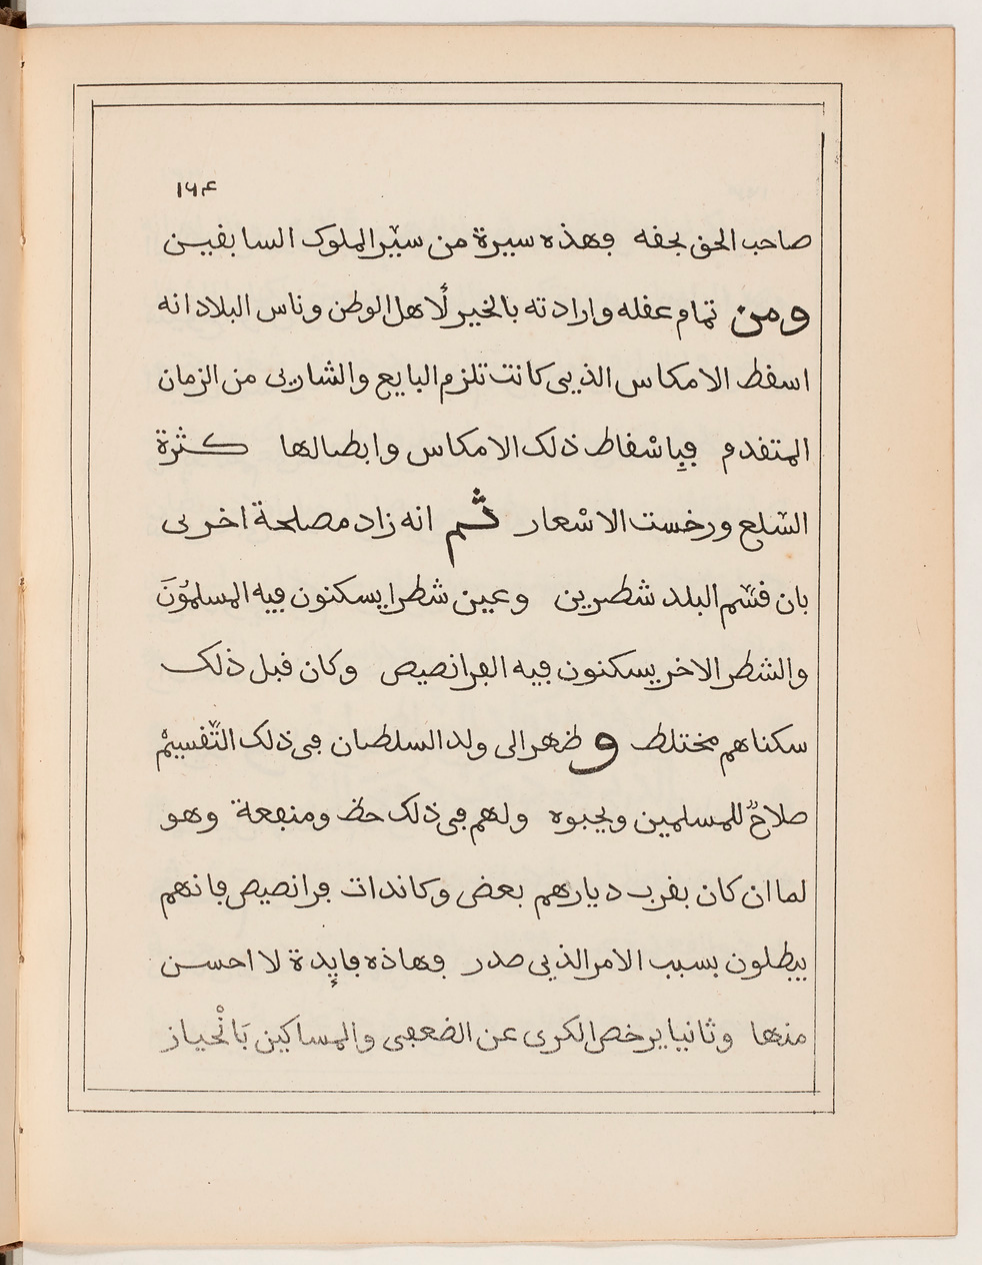 ١٦٤
صاحب الحق بحقه فهذه سيرة من سيّر الملوك السابقيـن
ومن تمام عقله وارادته بالخير لأاهل الوطن وناس البلاد انه
اسقط الامكاس الذيى كانت تلزم البايع والشاريى من الزمان
المتقدم فبِاسْقاط ذلك الامكاس وابطالها كـثرة
السّلع ورخست الاسْعار ثـم انه زاد مصلحة اخريى
بان قسّم البلد شطرين وعين شطرا يسكنون فيه المسلموُنَ
والشطر الاخر يسكنون فيه الفرانصيص وكان قبل ذلك
سكناهم مختلط و ظهر الى ولد السلطان فى ذلك التّقسيمْ
صلاحٌ للمسلمين ويحبوه ولهم فى ذلك حظ ومنفعة وهو
لما ان كان بقرب ديارهم بعض وكاندات فرانصيص فانهم
يبطلون بسبب الامر الذيى صدر فهاذه فايٕدة لا احسـن
منها وثانيا يرخص الكرى عن الضعفى والمساكين بَانْحياز